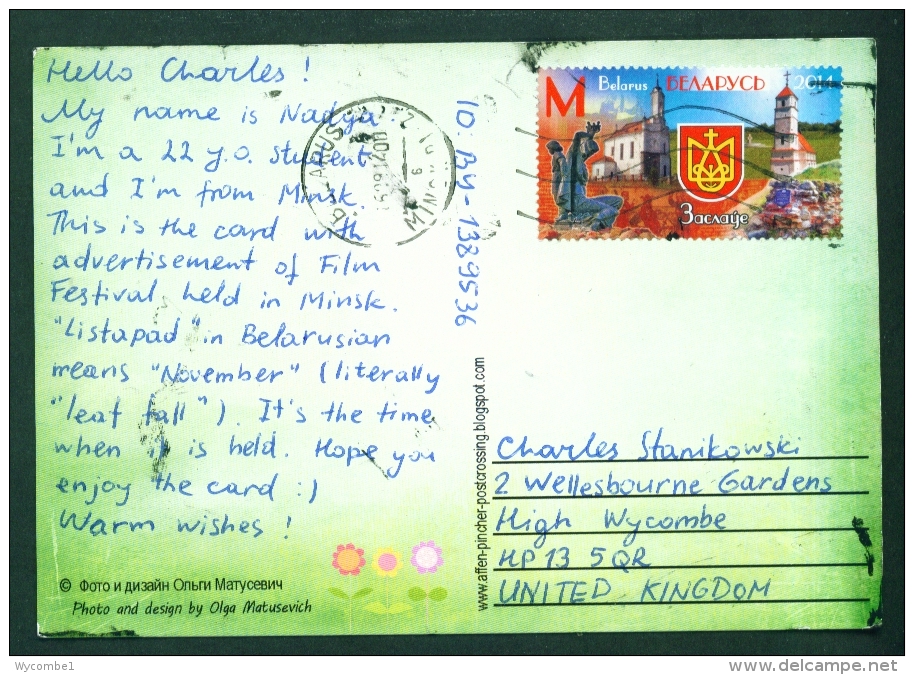 Hello Charles!
My name is Nadya
I'm a 22 y.o. student
and I'm from Minsk.
This is the card with
advertisement of Film
Festival held in Minsk.
"Listapad" in Belarusian
means "November" (literally
"leaf fall"). It's the time
when it is held. Hope you
enjoy the card :)
Warm wishes!
© Фото и дизайн Ольги Матусевич
Photo and design by Olga Matusevich
ID: BY-1389536
www.affen-pincher-postcrossing.blogspot.com
M Belarus БЕЛАРУСЬ 2014
Заслаўе
Charles Stanikowski
2 Wellesbourne Gardens
High Wycombe
HP13 5QR
UNITED KINGDOM
Wycombe1
www.delcampe.net